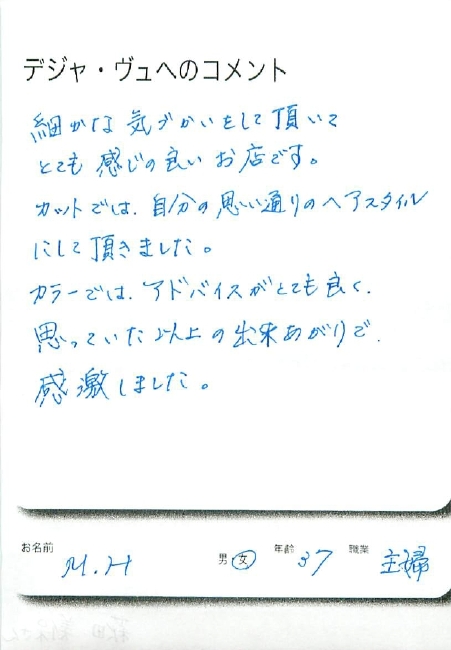 デジャ・ヴュへのコメント
細かな気づかいをして頂いて
とても感じの良いお店です。
カットでは、自分の思い通りのヘアスタイル
にして頂きました。
カラーでは、アドバイスがとても良く、
思っていた以上の出来あがりで、
感激しました。
お名前 M.H 男・女 年齢 37 職業 主婦